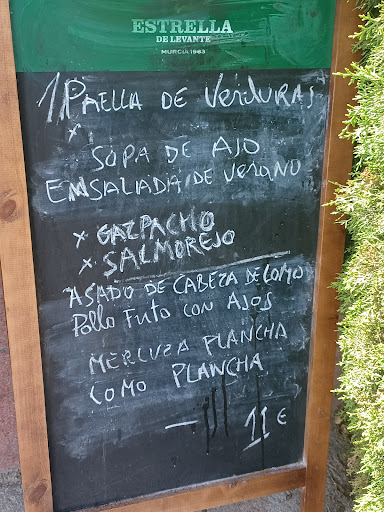 ESTRELLA
DE LEVANTE
MURCIA 1963
1. PAELLA DE VERDURAS
x
SOPA DE AJO
ENSALADA DE VERANO
x GAZPACHO
x SALMOREJO
ASADO DE CABEZA DE LOMO
Pollo Frito con AJOS
MERLUZA PLANCHA
LOMO PLANCHA
— 11 €